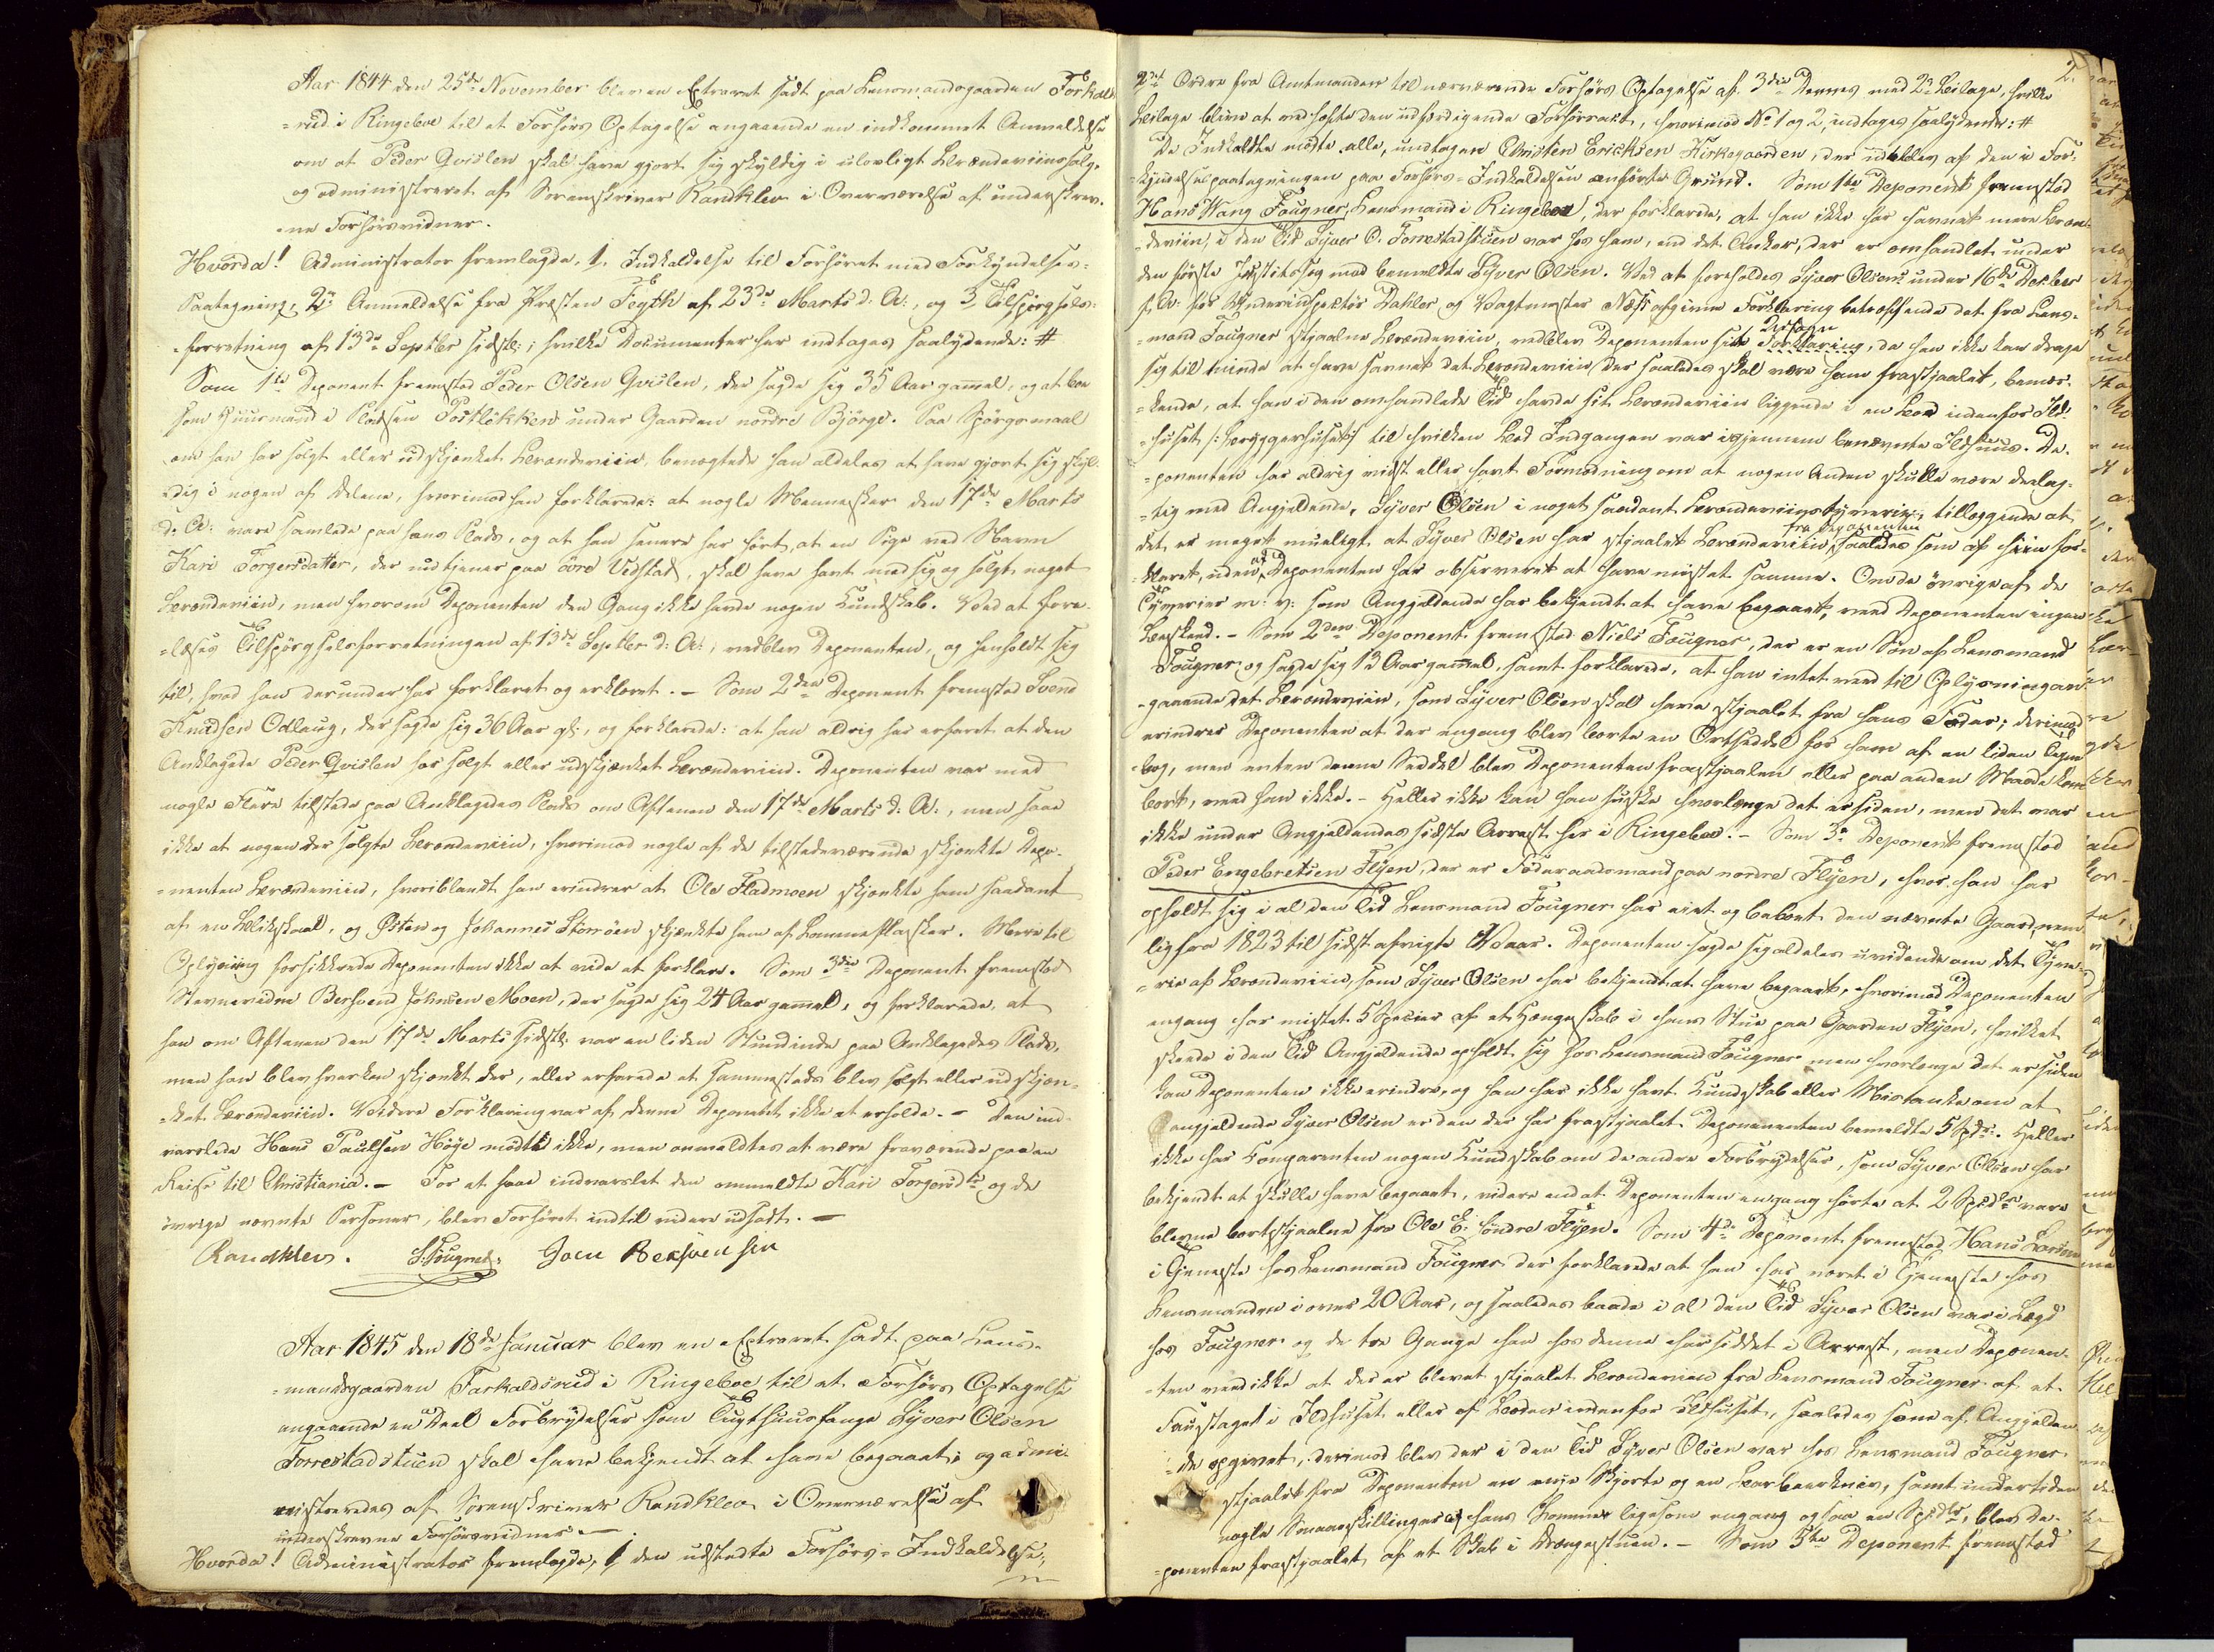 Aar 1844 den 25de November blev en Extraret sadt paa Lensmandsgaarden Forkals-
=rud i Ringeboe til et Forhørs Optagelse angaaende en indkommet Anmeldelse
om at Peder Qvislen skal have gjort sig skyldig i ulovligt Brændeviinssalg,
og administreret af Sorenskriver Randklev i Overværelse af underskrev-
=ne Forhørsvidner.
Hvorda! Administrator fremlagde, 1, Indkaldelse til Forhøret med Forkyndelses-
Paategning, 2, Anmeldelse fra Præsten Feyth af 23de Marts d: A:, og 3 Tilspørgsels-
=forretning af 13de Septbr sidstl:; hvilke Documenter her indtages saalydende: #
Som 1te Deponent fremstod Peder Olsen Qvislen, der sagde sig 35 Aar gammel, og at boe
som Huusmand i Pladsen Postløkken under Gaarden nordre Bjørge. Paa Spørgsmaal
om han har solgt eller udskjænket Brændeviin, benægtede han aldeles at have gjort sig skyl-
=dig i nogen af Delene, hvorimod han forklarede: at nogle Mennesker den 17de Marts
d: A: vare samlede paa hans Plads, og at han senere har hørt, at en Pige ved Navn
Kari Torgersdatter, der nu tjener paa øvre Vidstad, skal have havt med sig og solgt noget
Brændeviin, men hvorom Deponenten den Gang ikke havde nogen Kundskab. Ved at fore-
=læses Tilspørgselsforretningen af 13de Septbr d: A:, vedblev Deponenten, og henholdt sig
til, hvad han derunder har forklaret og erklæret. – Som 2den Deponent fremstod Svend
Knudsen Odlaug, der sagde sig 36 Aar gl:, og forklarede: at han aldrig har erfaret at den
Anklagede Peder Qvislen har solgt eller udskjænket Brændeviin. Deponenten var med
nogle Flere tilstede paa Anklagedes Plads om Aftenen den 17de Marts d: A:, men saae
ikke at nogen der solgte Brændeviin, hvorimod nogle af de tilstedeværende skjænkte Depo-
=nenten Brændeviin, hvoriblandt han erindrer at Ole Fladmoen skjænkte ham saadant
af en Blikskaal, og Østen og Johannes Storrøen skjænkte ham af Lommeflasker. Mere til
Oplysning forsikkrede Deponenten ikke at vide at forklare. Som 3die Deponent fremstod
Stevnevidne Bersvend Johnsen Moen, der sagde sig 24 Aar gammel, og forklarede, at
han om Aftenen den 17de Marts sidstl: var en liden Stund inde paa Anklagedes Plads,
men han blev hverken skjænket der, eller erfarede at sammesteds blev solgt eller udskjæn-
=ket Brændeviin. Videre Forklaring var af denne Deponent ikke at erholde. – Den ind-
varslede Hans Paulsen Høye mødte ikke, men anmeldtes at være fraværende paa en
Reise til Christiania. – For at faae indvarslet den ommeldte Kari Torgersdtr og de
øvrige nævnte Personer, blev Forhøret indtil videre udsadt. –
Randklev. S. Fougner. Joen Bersvensen
Aar 1845 den 18de Januar blev en Extraret sadt paa Lens-
=mandsgaarden Farkaldsrud i Ringeboe til et Forhørs Optagelse
angaaende en Deel Forbrydelser som Tugthuusfange Syver Olsen
Forrestadstuen skal have bekjendt at have begaaet; og admi-
nistreredes af Sorenskriver Randklev i Overværelse af
underskrevne Forhørsvidner –
Hvorda! Administrator fremlagde, 1 den udstedte Forhørs-Indkaldelse,
2.
2det Ordre fra Amtmanden til nærværende Forhørs Optagelse af 3die Dennes med 2de Beilage, hvilke
Beilage blive at vedhefte den udfærdigende Forhørsact, hvorimod No 1 og 2, indtages saalydende: #
De Indkaldte mødte alle, undtagen Christen Ericksen Kirkegaarden, der udeblev af den i For-
=kyndelsespaategningen paa Forhørs-Indkaldelsen anførte Grund. Som 1te Deponent fremstod
Hans Wang Fougner Lensmand i Ringeboe, der forklarede, at han ikke har savnet mere Bræn-
=deviin, i den Tid Syver O. Forrestadstuen var hos ham, end det Anker, der er omhandlet under
den første Justitssag mod bemeldte Syver Olsen. Ved at foreholdes Syver Olsens under 16de Decbr
f. A: for Underinspektør Dahler og Vagtmester Næss afgivne Forklaring betreffende det fra Lens-
=mand Fougner stjaalne Brændeviin, vedblev Deponenten sit Forklaring Udsagn, da han ikke kan drage
sig til minde at have savnet det Brændeviin, der saaledes skal være ham frastjaalet, bemær-
=kende, at han i den omhandlede Tid havde sit Brændeviin liggende i en Bod indenfor Ild-
=huset /: Bryggerhuset :/ til hvilken Bod Indgangen var igjennem benævnte Ildhuus. De-
=ponenten har aldrig vidst eller havt Formodning om at nogen Anden skulle være deelag-
=tig med Angjeldende, Syver Olsen i noget saadant Brændeviinstyverie, tillæggende at
det er meget mueligt at Syver Olsen har stjaalet Brændeviin fra Deponenten saaledes som af ham for-
=klaret, uden at Deponenten har observeret at have mistet samme. Om de øvrige af de
Tyverier m: v: som Angjældende har bekjendt at have begaaet, veed Deponenten ingen
Beskeed. – Som 2den Deponent fremstod Niels Fougner, der er en Søn af Lensmand
Fougner og sagde sig 13 Aar gammel, samt forklarede, at han intet veed til Oplysning an-
=gaaende det Brændeviin, som Syver Olsen skal have stjaalet fra hans Fader; derimod
erindrer Deponenten at der engang blev borte en Ortseddel for ham af en liden Tegne-
bog, men enten denne Seddel blev Deponenten frastjaalen eller paa anden Maade kom
bort, veed han ikke. – Heller ikke kan han huske hvorlænge det er siden, men det var
ikke under Angjældendes sidste Arrest her i Ringeboe. – Som 3die Deponent fremstod
Peder Engebretsen Flyen, der er Føderaadsmand paa nordre Flyen, hvor han har
opholdt sig i al den Tid Lensmand Fougner har eiet og beboet den nævnte Gaard, nem-
lig fra 1823 til sidst afvigte Vaar. Deponenten sagde sig aldeles uvidende om det Tyve-
=rie af Brændeviin, som Syver Olsen har bekjendt at have begaaet, hvorimod Deponenten
engang har mistet 5 Specier af et Hængeskab i hans Stue paa Gaarden Flyen, hvilket
skeede i den Tid Angjeldende opholdt sig hos Lensmand Fougner men hvorlænge det er siden
kan Deponenten ikke erindre, og han har ikke havt Kundskab eller Mistanke om at
angjeldende Syver Olsen er den der har frastjaalet Deponenten bemeldte 5 Spdr. Heller
ikke har Comparenten nogen Kundskab om de andre Forbrydelser, som Syver Olsen har
bekjendt at skulle have begaaet, videre end at Deponenten engang hørte at 2 Spdlr vare
blevne bortstjaalne fra Ole E: søndre Flyen. Som 4de Deponent fremstod Hans Larsen
i Tjeneste hos Lensmand Fougner der forklarede at han har været i Tjeneste hos
Lensmanden i over 20 Aar, og saaledes baade i al den Tid Syver Olsen var i Lægd
hos Fougner og de tre Gange han hos denne har siddet i Arrest, men Deponen-
=ten veed ikke at der er blevet stjaalet Brændeviin fra Lensmand Fougner af et
Faustaget i Ildhuset eller af Boden indenfor Ildhuset, saaledes som af Angjelden-
=de opgivet, derimod blev der i den Tid Syver Olsen var hos Lensmand Fougner
stjaalet fra Deponenten en nye Skjorte og en Barbeerkniv, samt undertiden
nogle Smaaeskillinger af hans Lommer ligesom engang ogsaa en Spdlr, blev De-
=ponenten frastjaalet af et Skab i Drengestuen. – Som 5te Deponent fremstod